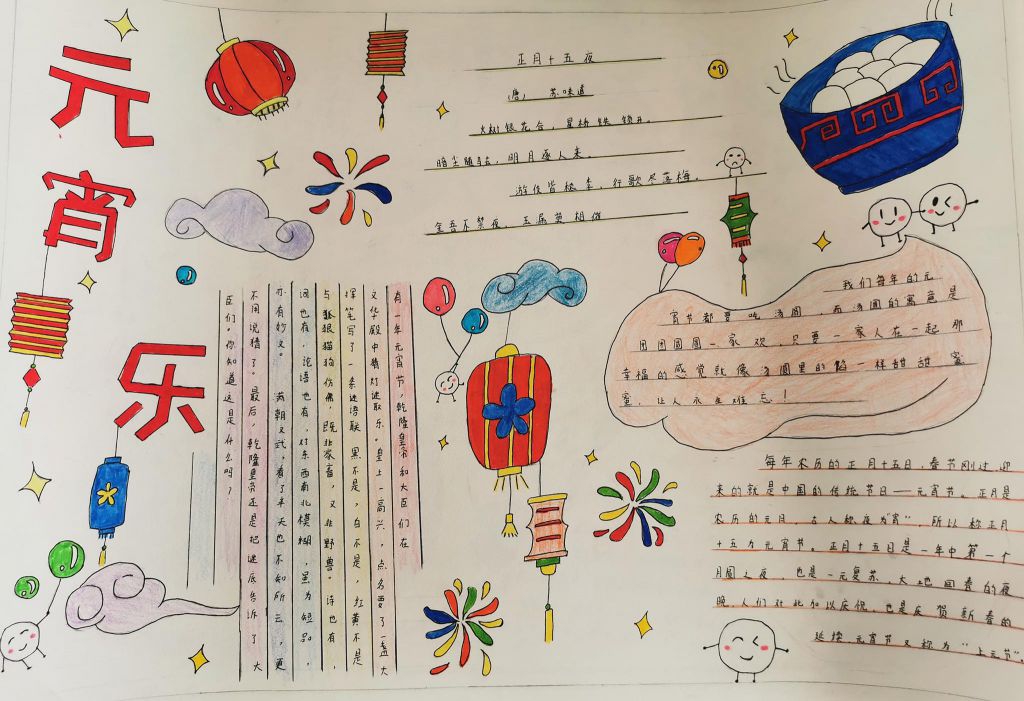 元宵乐
正月十五夜
(唐) 苏味道
火树银花合，星桥铁锁开。
暗尘随马去，明月逐人来。
游伎皆秾李，行歌尽落梅。
金吾不禁夜，玉漏莫相催
有一年元宵节，乾隆皇帝和大臣们在
文华殿中猜灯谜取乐。皇上一高兴，点名要了一盏大
挥笔写了一条谜语联：黑不是，白不是，红黄不是
与狐狼猫狗仿佛，既非家畜，又非野兽。诗也有，
词也有，论语也有，对东西南北模糊，虽为短品，
亦有妙文。 满朝文武，看了半天也不知所云，更
不用说猜了。最后，乾隆皇帝还是把谜底告诉了大
臣们。你知道这是什么吗？
我们每年的元
宵节都要吃汤圆，而汤圆的寓意是
团团圆圆一家欢，只要一家人在一起那
幸福的感觉就像汤圆里的馅一样甜甜蜜
蜜，让人永生难忘！
每年农历的正月十五日，春节刚过，迎
来的就是中国的传统节日——元宵节。正月是
农历的元月，古人称夜为“宵”，所以称正月
十五为元宵节。正月十五日是一年中第一个
月圆之夜，也是一元复苏，大地回春的夜
晚，人们对此加以庆祝，也是庆贺新春的
延续元宵节又称为“上元节”。